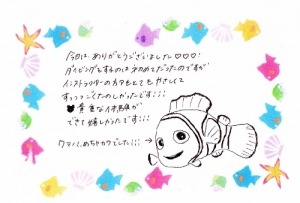 今日は、ありがとうございました♡♡♡
ダイビングをするのは初めてだったのですが
インストラクターの方々もとてもやさしくて
すっっっごくたのしかったです!!!
♥貴重な体験が
できて嬉しかったです!!!
クマノミ、めちゃカワでした!!!→